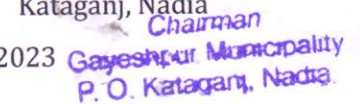 Kataganj, Nadia
Chairman
2023 Gayeshpur Municipality
P. O. Kataganj, Nadia.